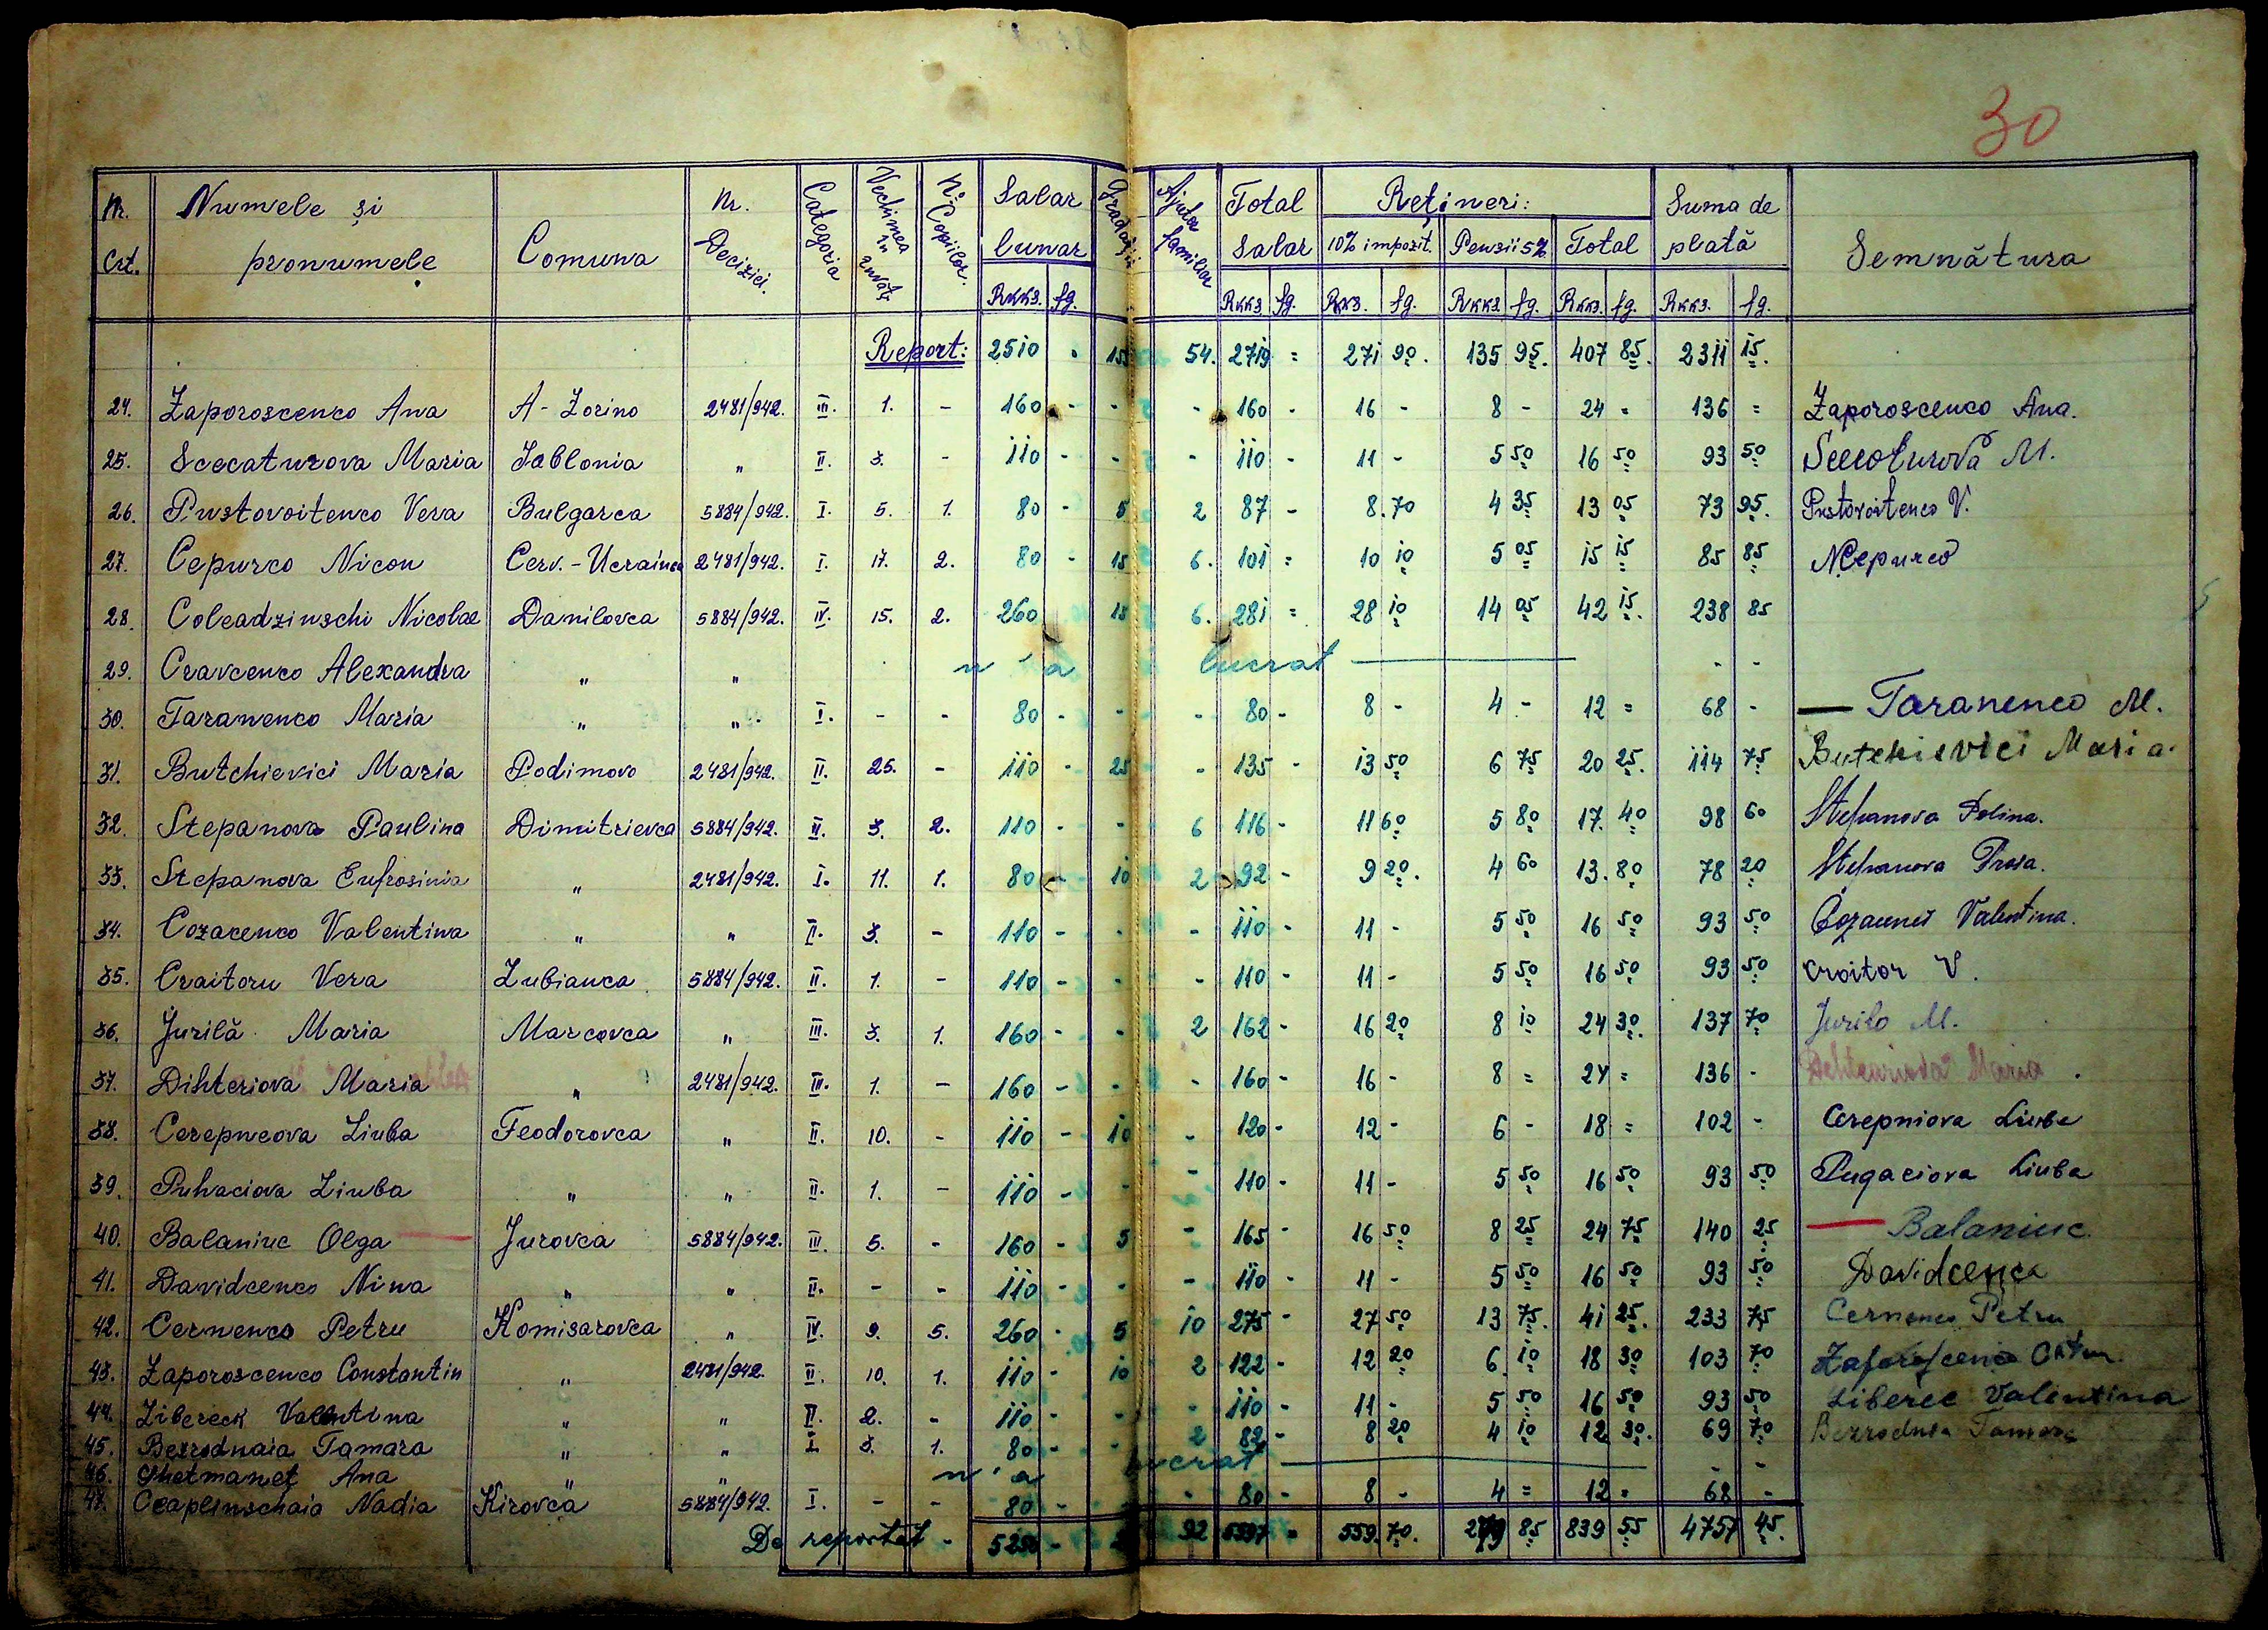 30
Nr. Crt. Numele și pronumele Comuna Nr. Deciziei. Categoria Vechimea în învăț. No. Copiilor. Salar lunar Gradații Ajutor familiar Total Salar Rețineri: 10% impozit. Pensii 5% Total Suma de plată Semnătura
Rkks. fg. Rkks. fg. Rkks. fg. Rkks. fg. Rkks. fg. Rkks. fg.
Report: 2510 . 155 54. 2719 = 271 90. 135 95. 407 85. 2311 15.
24. Zaporoscenco Ana A-Zorino 2481/942. III. 1. - 160 - - - 160 - 16 - 8 - 24 = 136 = Zaporoscenco Ana.
25. Scecaturova Maria Iablonia " II. 3. - 110 - - - 110 - 11 - 5 50 16 50 93 50 M.
26. Pustovoitenco Vera Bulgarca 5884/942. I. 5. 1. 80 - 5 2 87 - 8.70 4 35 13 05 73 95. Pustovoitenco V.
27. Cepurco Nicon Cerv.-Ucrainca 2481/942. I. 17. 2. 80 - 15 6. 101 = 10 10 5 05 15 15 85 85 NCepurco
28. Coleadzinschi Nicolae Danilovca 5884/942. IV. 15. 2. 260 15 6. 281 = 28 10 14 05 42 15. 238 85
29. Cravcenco Alexandra " " n'a lucrat - -
30. Taranenco Maria " " I. - - 80 - - - 80 - 8 - 4 - 12 = 68 - — Taranenco M.
31. Butchievici Maria Podimovo 2481/942. II. 25. - 110 - 25 - 135 - 13 50 6 75 20 25. 114 75 Butchievici Maria.
32. Stepanova Paulina Dimitrievca 5884/942. II. 3. 2. 110 - - 6 116 - 11 60 5 80 17. 40 98 60 Stepanova Polina.
33. Stepanova Eufrosinia " 2481/942. I. 11. 1. 80 - 10 2 92 - 9 20. 4 60 13. 80 78 20 Stepanova
34. Cozacenco Valentina " " II. 3. - 110 - - - 110 - 11 - 5 50 16 50 93 50 Valentina.
35. Craitoru Vera Lubianca 5884/942. II. 1. - 110 - - - 110 - 11 - 5 50 16 50 93 50 Croitor V.
36. Jurilă Maria Marcovca " III. 3. 1. 160 - - 2 162 - 16 20 8 10 24 30. 137 70 Jurilo M.
37. Dihteriova Maria " 2481/942. III. 1. - 160 - - - 160 - 16 - 8 = 24 = 136 - Maria
38. Cerepneova Liuba Feodorovca " II. 10. - 110 - 10 - 120 - 12 - 6 - 18 = 102 - Cerepniova Liuba
39. Puhaciova Liuba " " II. 1. - 110 - - - 110 - 11 - 5 50 16 50 93 50 Pugaciova Liuba
40. Balaniuc Olga Jurovca 5884/942. III. 5. - 160 - 5 - 165 - 16 50 8 25 24 75 140 25 — Balaniuc.
41. Davidcenco Nina " " II. - - 110 - - - 110 - 11 - 5 50 16 50 93 50 Davidcenca
42. Cernenco Petru Komisarovca " IV. 9. 5. 260 - 5 10 275 - 27 50 13 75. 41 25. 233 75 Cernenco Petru
43. Zaporoscenco Constantin " 2481/942. II. 10. 1. 110 - 10 2 122 - 12 20 6 10 18 30 103 70
44. Libereck Valentina " " II. 2. - 110 - - - 110 - 11 - 5 50 16 50 93 50 Liberec Valentina
45. Bezrodnaia Tamara " " I. 3. 1. 80 - - 2 82 - 8 20 4 10 12 30. 69 70 Tamara
46. Ghetmaneț Ana " " n'a lucrat - -
47. Ceaplinschaia Nadia Kirovca 5884/942. I. - - 80 - - - 80 - 8 - 4 = 12 = 68 -
De reportat - 92 5597 = 559. 70. 279 85 839 55 4757 45.